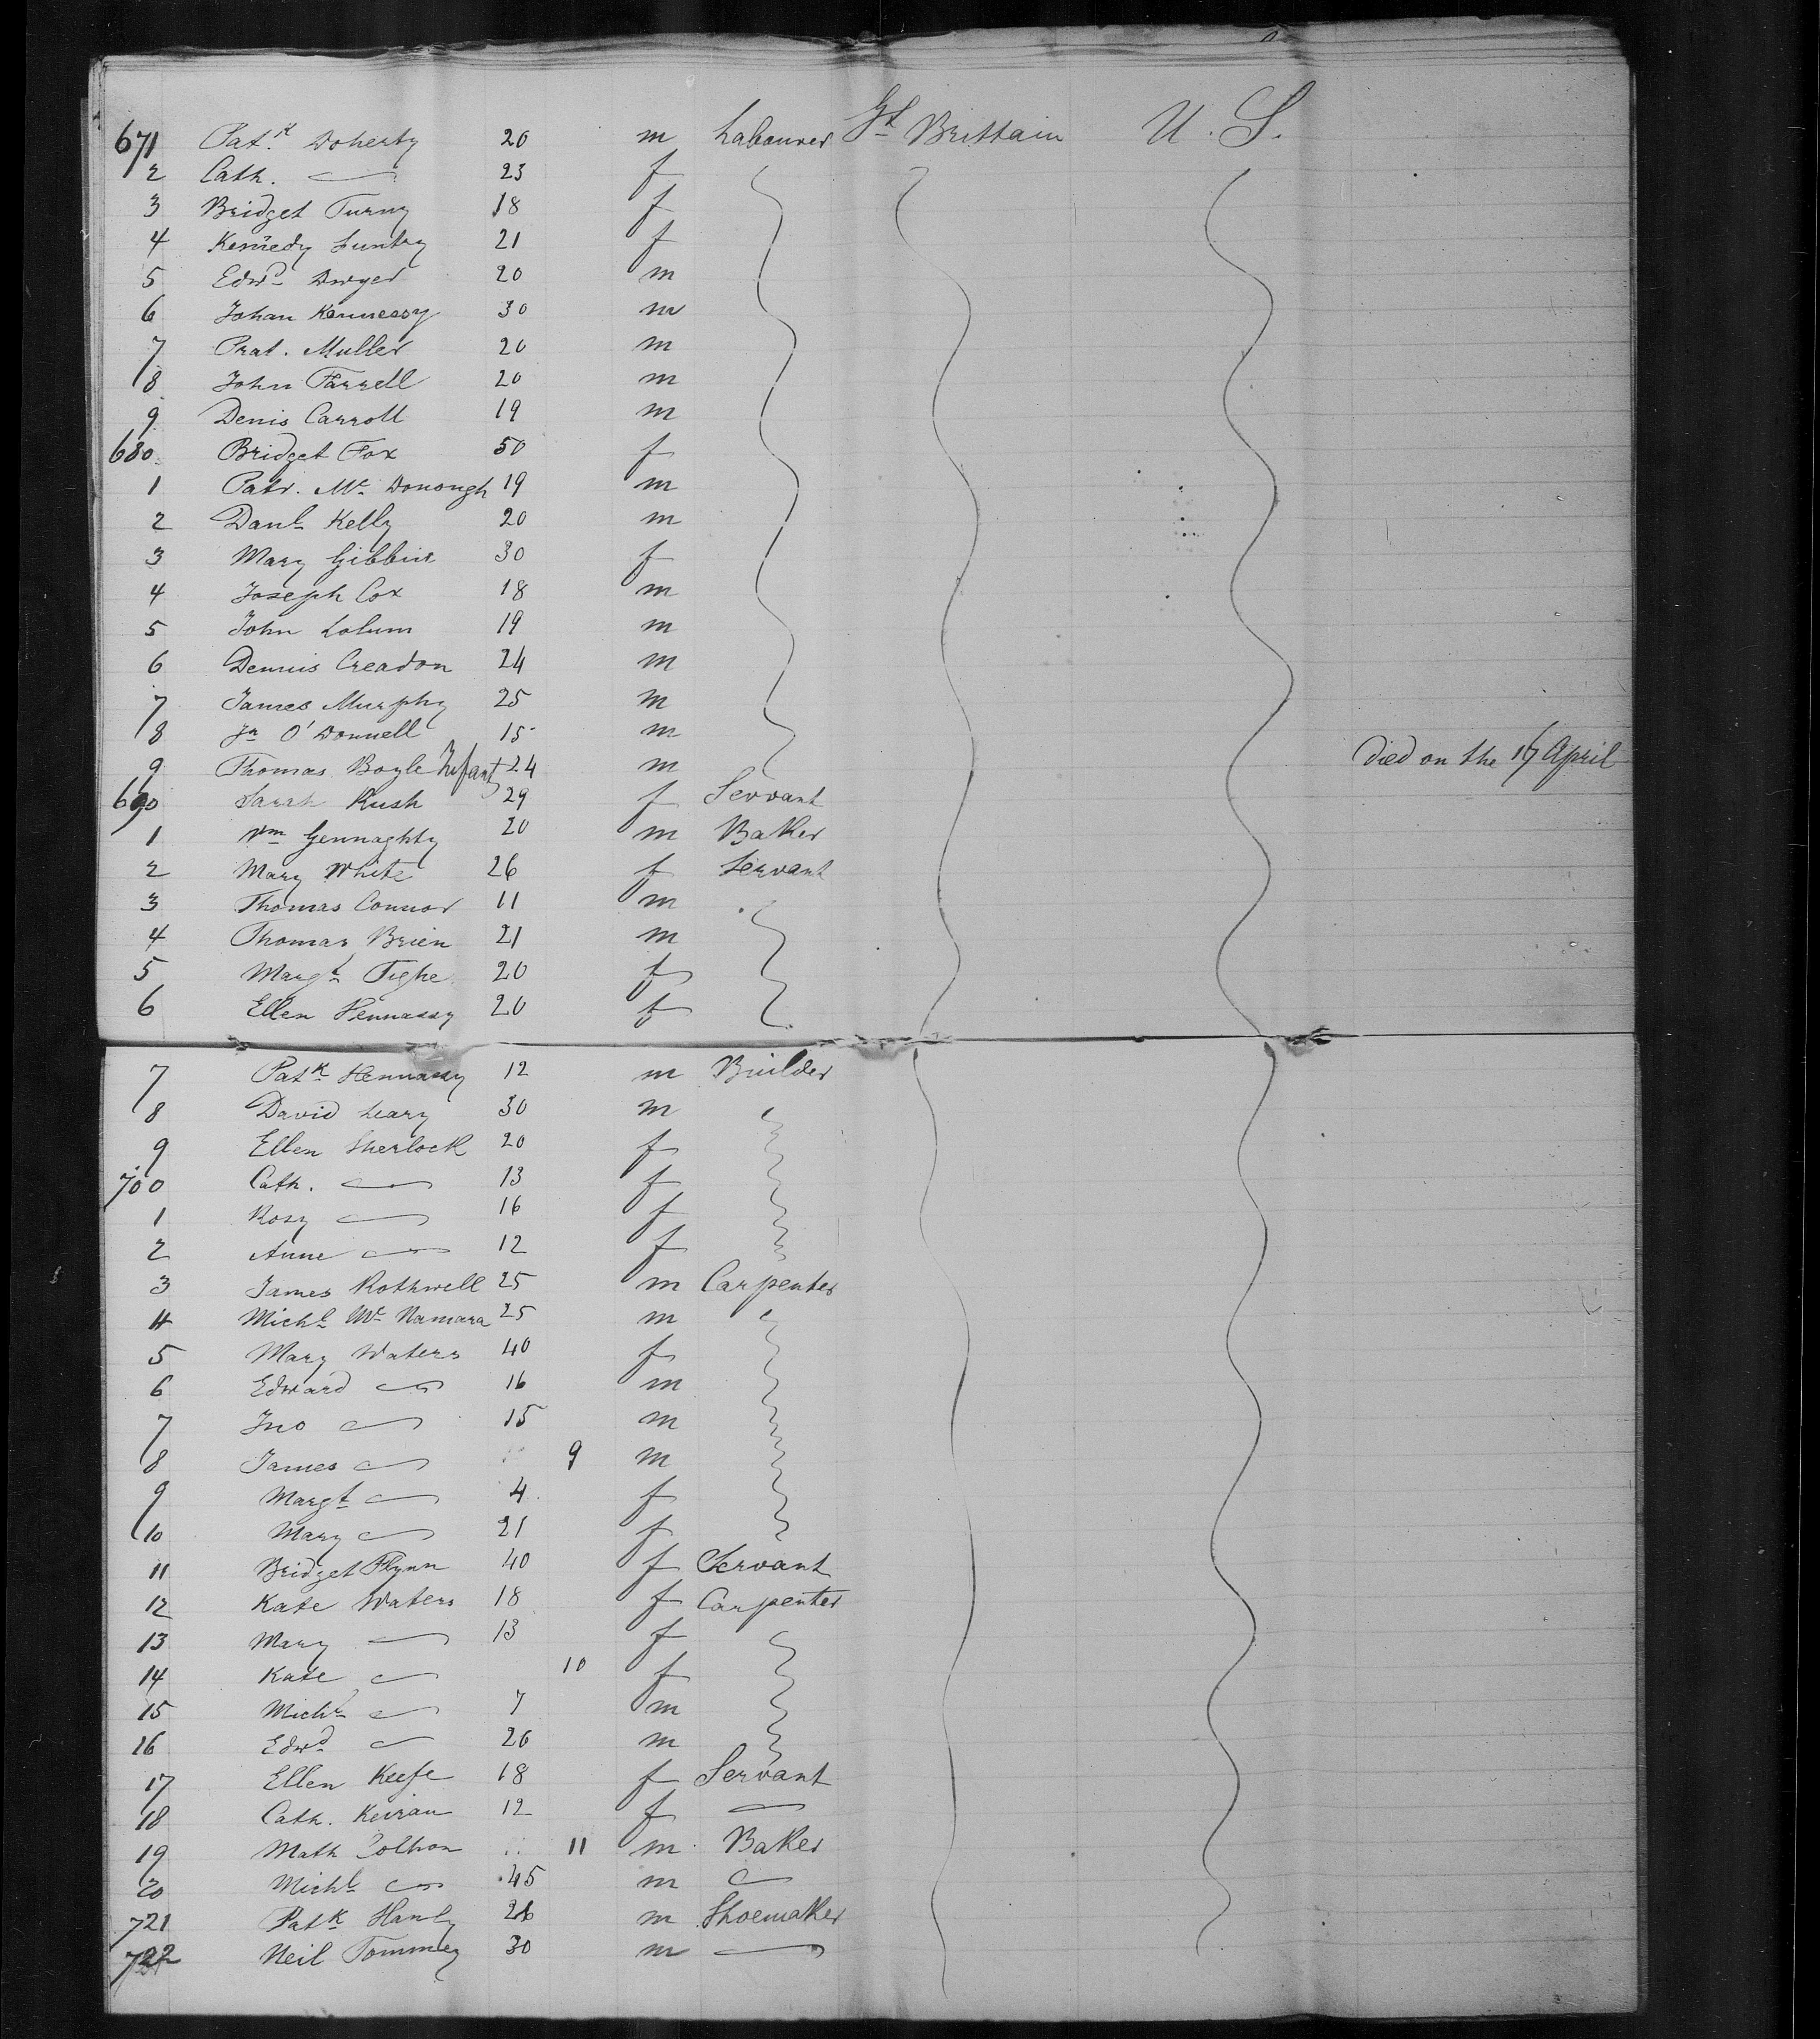 671 Pat.k Doherty 20 m Labourer Gt Brittain U. S.
2 Cath. — 23 f
3 Bridget Turny 18 f
4 Kennedy 21 f
5 Edwd Dwyer 20 m
6 Johan Kennessy 30 m
7 Prat. Muller 20 m
8 John Farrell 20 m
9 Denis Carroll 19 m
680 Bridget Fox 50 f
1 Patr. Mc Donough 19 m
2 Danl Kelly 20 m
3 Mary Gibbins 30 f
4 Joseph Cox 18 m
5 John Lolum 19 m
6 Dennis Creadon 24 m
7 James Murphy 25 m
8 Jn O'Donnell 15 m
9 Thomas Boyle Infant 24 m Died on the 17 April
690 Sarah Rush 29 f Servant
1 Wm Gennaghty 20 m Baker
2 Mary White 26 f Servant
3 Thomas Connor 11 m
4 Thomas Brien 21 m
5 Margt Tighe 20 f
6 Ellen Hennassy 20 f
7 Patk Hennassy 12 m Builder
8 David Leary 30 m
9 Ellen Sherlock 20 f
700 Cath. — 13 f
1 Rosy — 16 f
2 Anne — 12 f
3 James Rothwell 25 m Carpenter
4 Michl Mc Namara 25 m
5 Mary Waters 40 f
6 Edward — 16 m
7 Jno — 15 m
8 James — 9 m
9 Margt — 4 f
10 Mary — 21 f
11 Bridget Flynn 40 f Servant
12 Kate Waters 18 f Carpenter
13 Mary — 13 f
14 Kate — 10 f
15 Michl — 7 m
16 Edwd — 26 m
17 Ellen Keefe 18 f Servant
18 Cath. Keiran 12 f —
19 Math Colhon 11 m Baker
20 Michl — 45 m —
721 Patk Hanly 26 m Shoemaker
722 Neil Tommey 30 m —